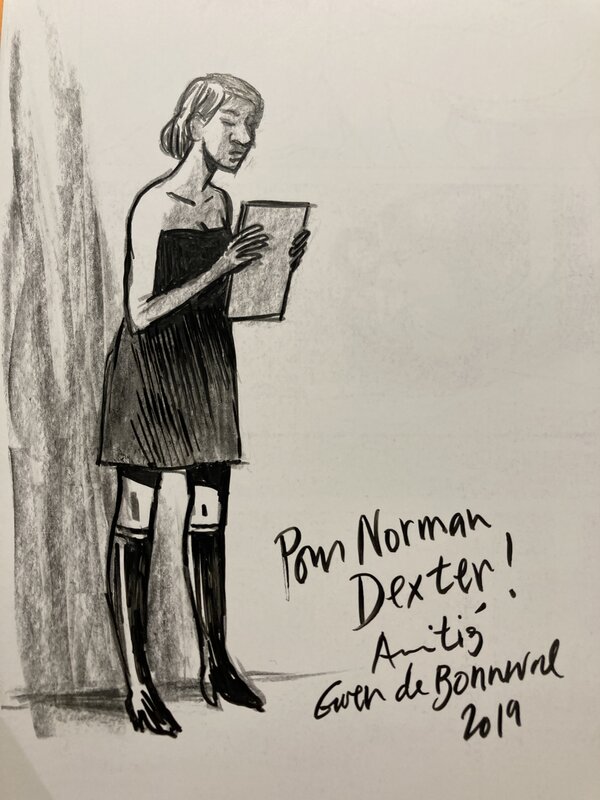 Pour Norman
Dexter!
Amitié
Gwen de Bonneval
2019